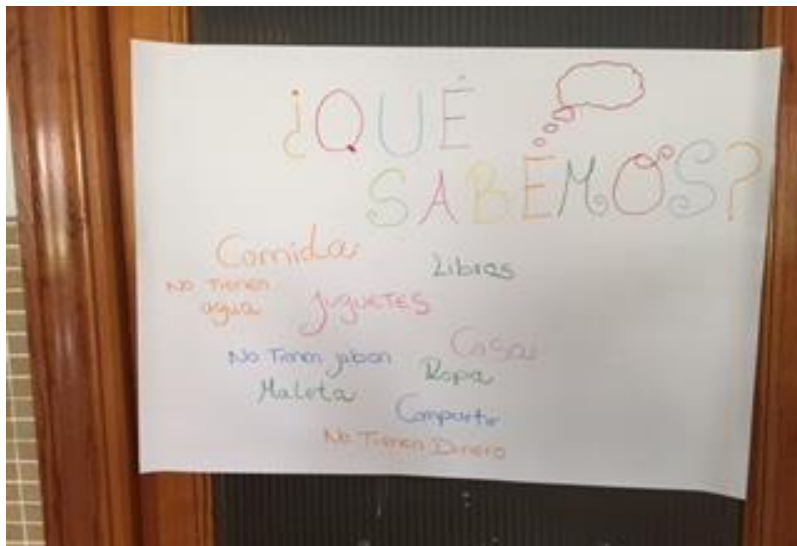 ¿QUÉ
SABEMOS?
Comida
Libros
No Tienen
agua
JUGUETES
Casa
No Tienen jabon
Ropa
Maleta
Compartir
No Tienen Dinero